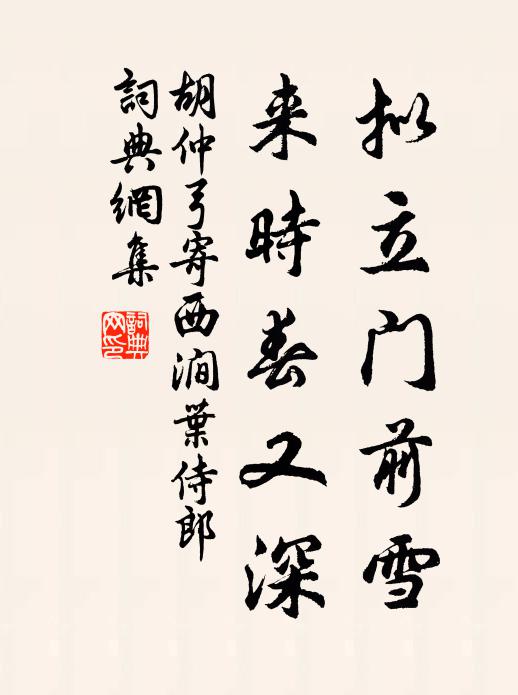 拟立门前雪
来時春又深
胡仲弓寄西澗葉侍郎
詞典網集
詞典
网印